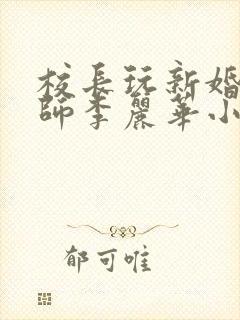 校長玩新婚
師李麗華小
郁可唯